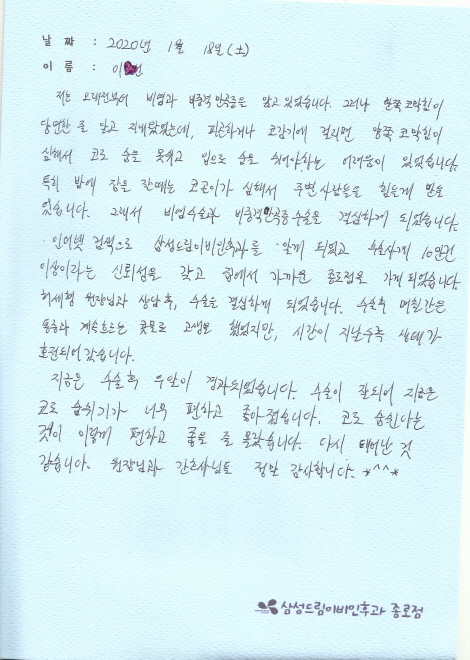 날 짜 : 2020년 1월 18일(土)
이 름 : 이
저는 오래전부터 비염과 비중격만곡증을 앓고 있었습니다. 그러나 한쪽 코막힘이
당연한 줄 알고 지내왔었는데, 피곤하거나 코감기에 걸리면 양쪽 코막힘이
심해서 코로 숨을 못쉬고 입으로 숨을 쉬어야하는 어려움이 있었습니다.
특히 밤에 잠을 잘때는 코골이가 심해서 주변사람들을 힘들게 만들
었습니다. 그래서 비염수술과 비중격만곡증수술을 결심하게 되었습니다.
인터넷 검색으로 삼성드림이비인후과를 알게 되었고 수술사례 10만건
이상이라는 신뢰성을 갖고 집에서 가까운 종로점을 가게 되었습니다.
허세형 원장님과 상담후, 수술을 결심하게 되었습니다. 수술후 며칠간은
통증과 계속흐르는 콧물로 고생을 했었지만, 시간이 지날수록 상태가
호전되어 갔습니다.
지금은 수술후 두달이 경과되었습니다. 수술이 잘되어 지금은
코로 숨쉬기가 너무 편하고 좋아졌습니다. 코로 숨쉰다는
것이 이렇게 편하고 좋을 줄 몰랐습니다. 다시 태어난 것
같습니다. 원장님과 간호사님들 정말 감사합니다. *^^*
삼성드림이비인후과 종로점